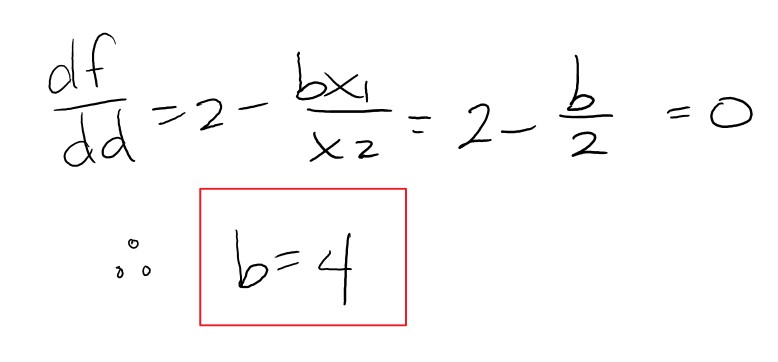 df/dd = 2 - bx1/x2 = 2 - b/2 = 0
∴ b = 4